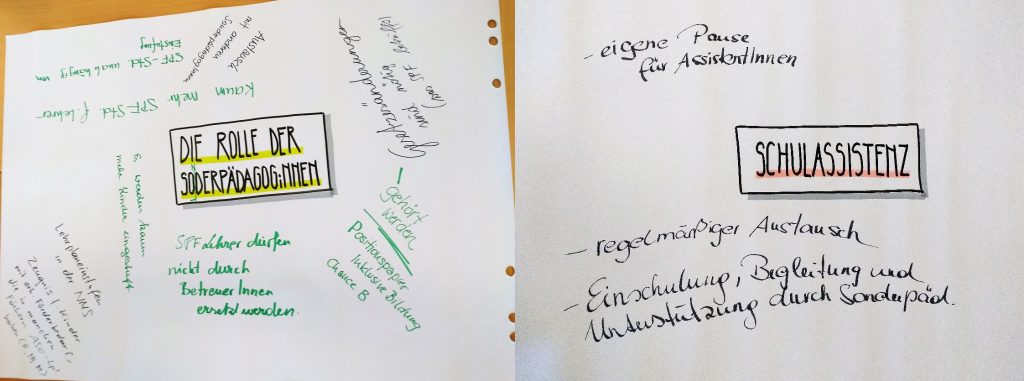 DIE ROLLE DER
SODERPÄDAGOG:NNEN
N
Austausch
mit anderen
SonderpädagogInnen
SPF-Std. unabhängig von
Einstufung
Kaum mehr SPF-Std. f. Lehrer
Es werden kaum
mehr Kinder eingestuft
Lehrplaneinstufen
in der NMS
Zeugnis / Kinder
mit
die in manchen
Fächern ASO-Lpl
haben (D, M, E)
SPF Lehrer dürfen
nicht durch
BetreuerInnen
ersetzt werden.
Gesetzesänderungen
sind nötig
SPF
– gehört
werden
Positionspapier
Inklusive Bildung
Chance B
– eigene Pause
für AssistentInnen
SCHULASSISTENZ
– regelmäßiger Austausch
– Einschulung, Begleitung und
Unterstützung durch Sonderpäd.